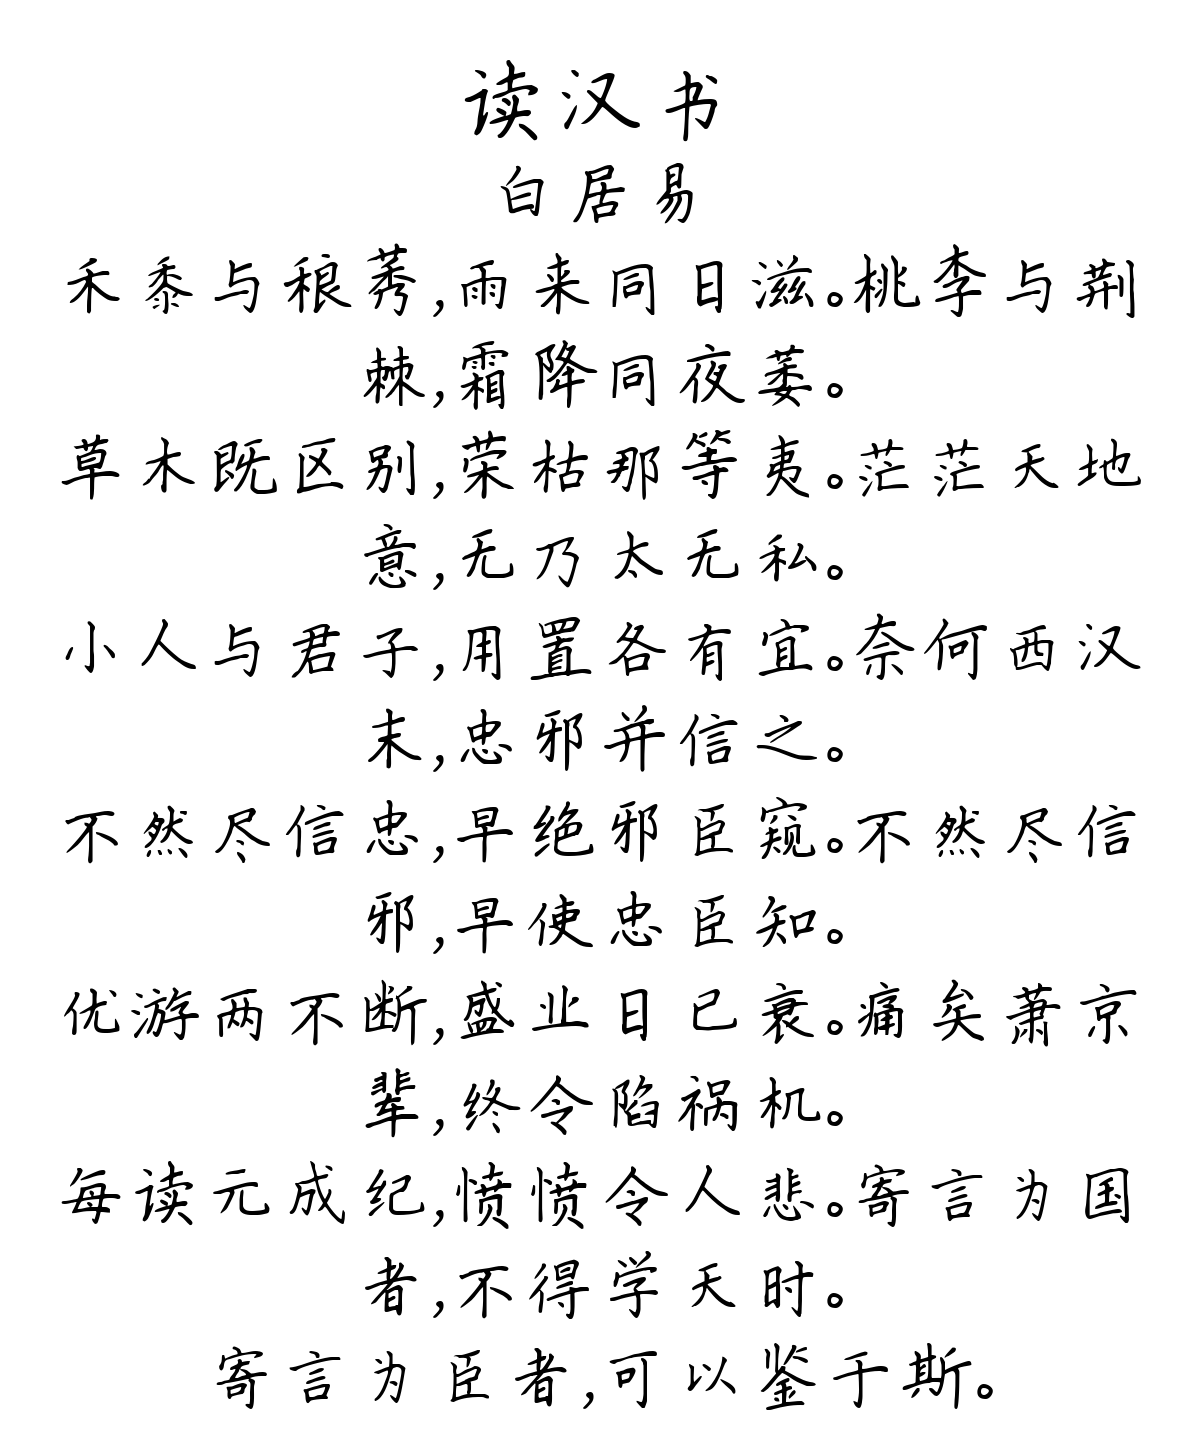 读汉书
白居易
禾黍与稂莠,雨来同日滋。桃李与荆
棘,霜降同夜萎。
草木既区别,荣枯那等夷。茫茫天地
意,无乃太无私。
小人与君子,用置各有宜。奈何西汉
末,忠邪并信之。
不然尽信忠,早绝邪臣窥。不然尽信
邪,早使忠臣知。
优游两不断,盛业日已衰。痛矣萧京
辈,终令陷祸机。
每读元成纪,愤愤令人悲。寄言为国
者,不得学天时。
寄言为臣者,可以鉴于斯。